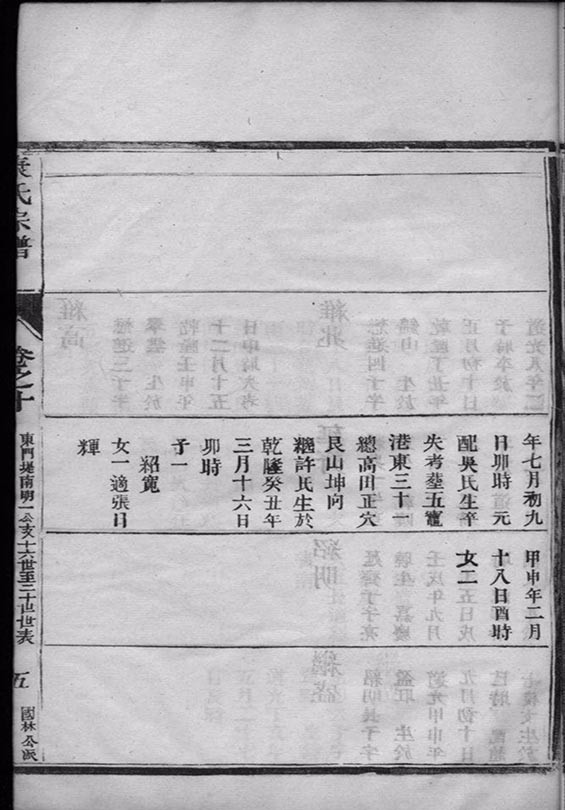 年七月初九
日卯時元
配吳氏生卒
失考塟五竈
港東三十一
總高田正穴
艮山坤向
繼許氏生於
乾隆癸丑年
三月十六日
卯時
子一
紹寬
女一適張日
輝
甲申年二月
十八日酉時
女二
氏宗譜
卷之十
東門堤南明一公支十六世至二十世世表
五
國林公派